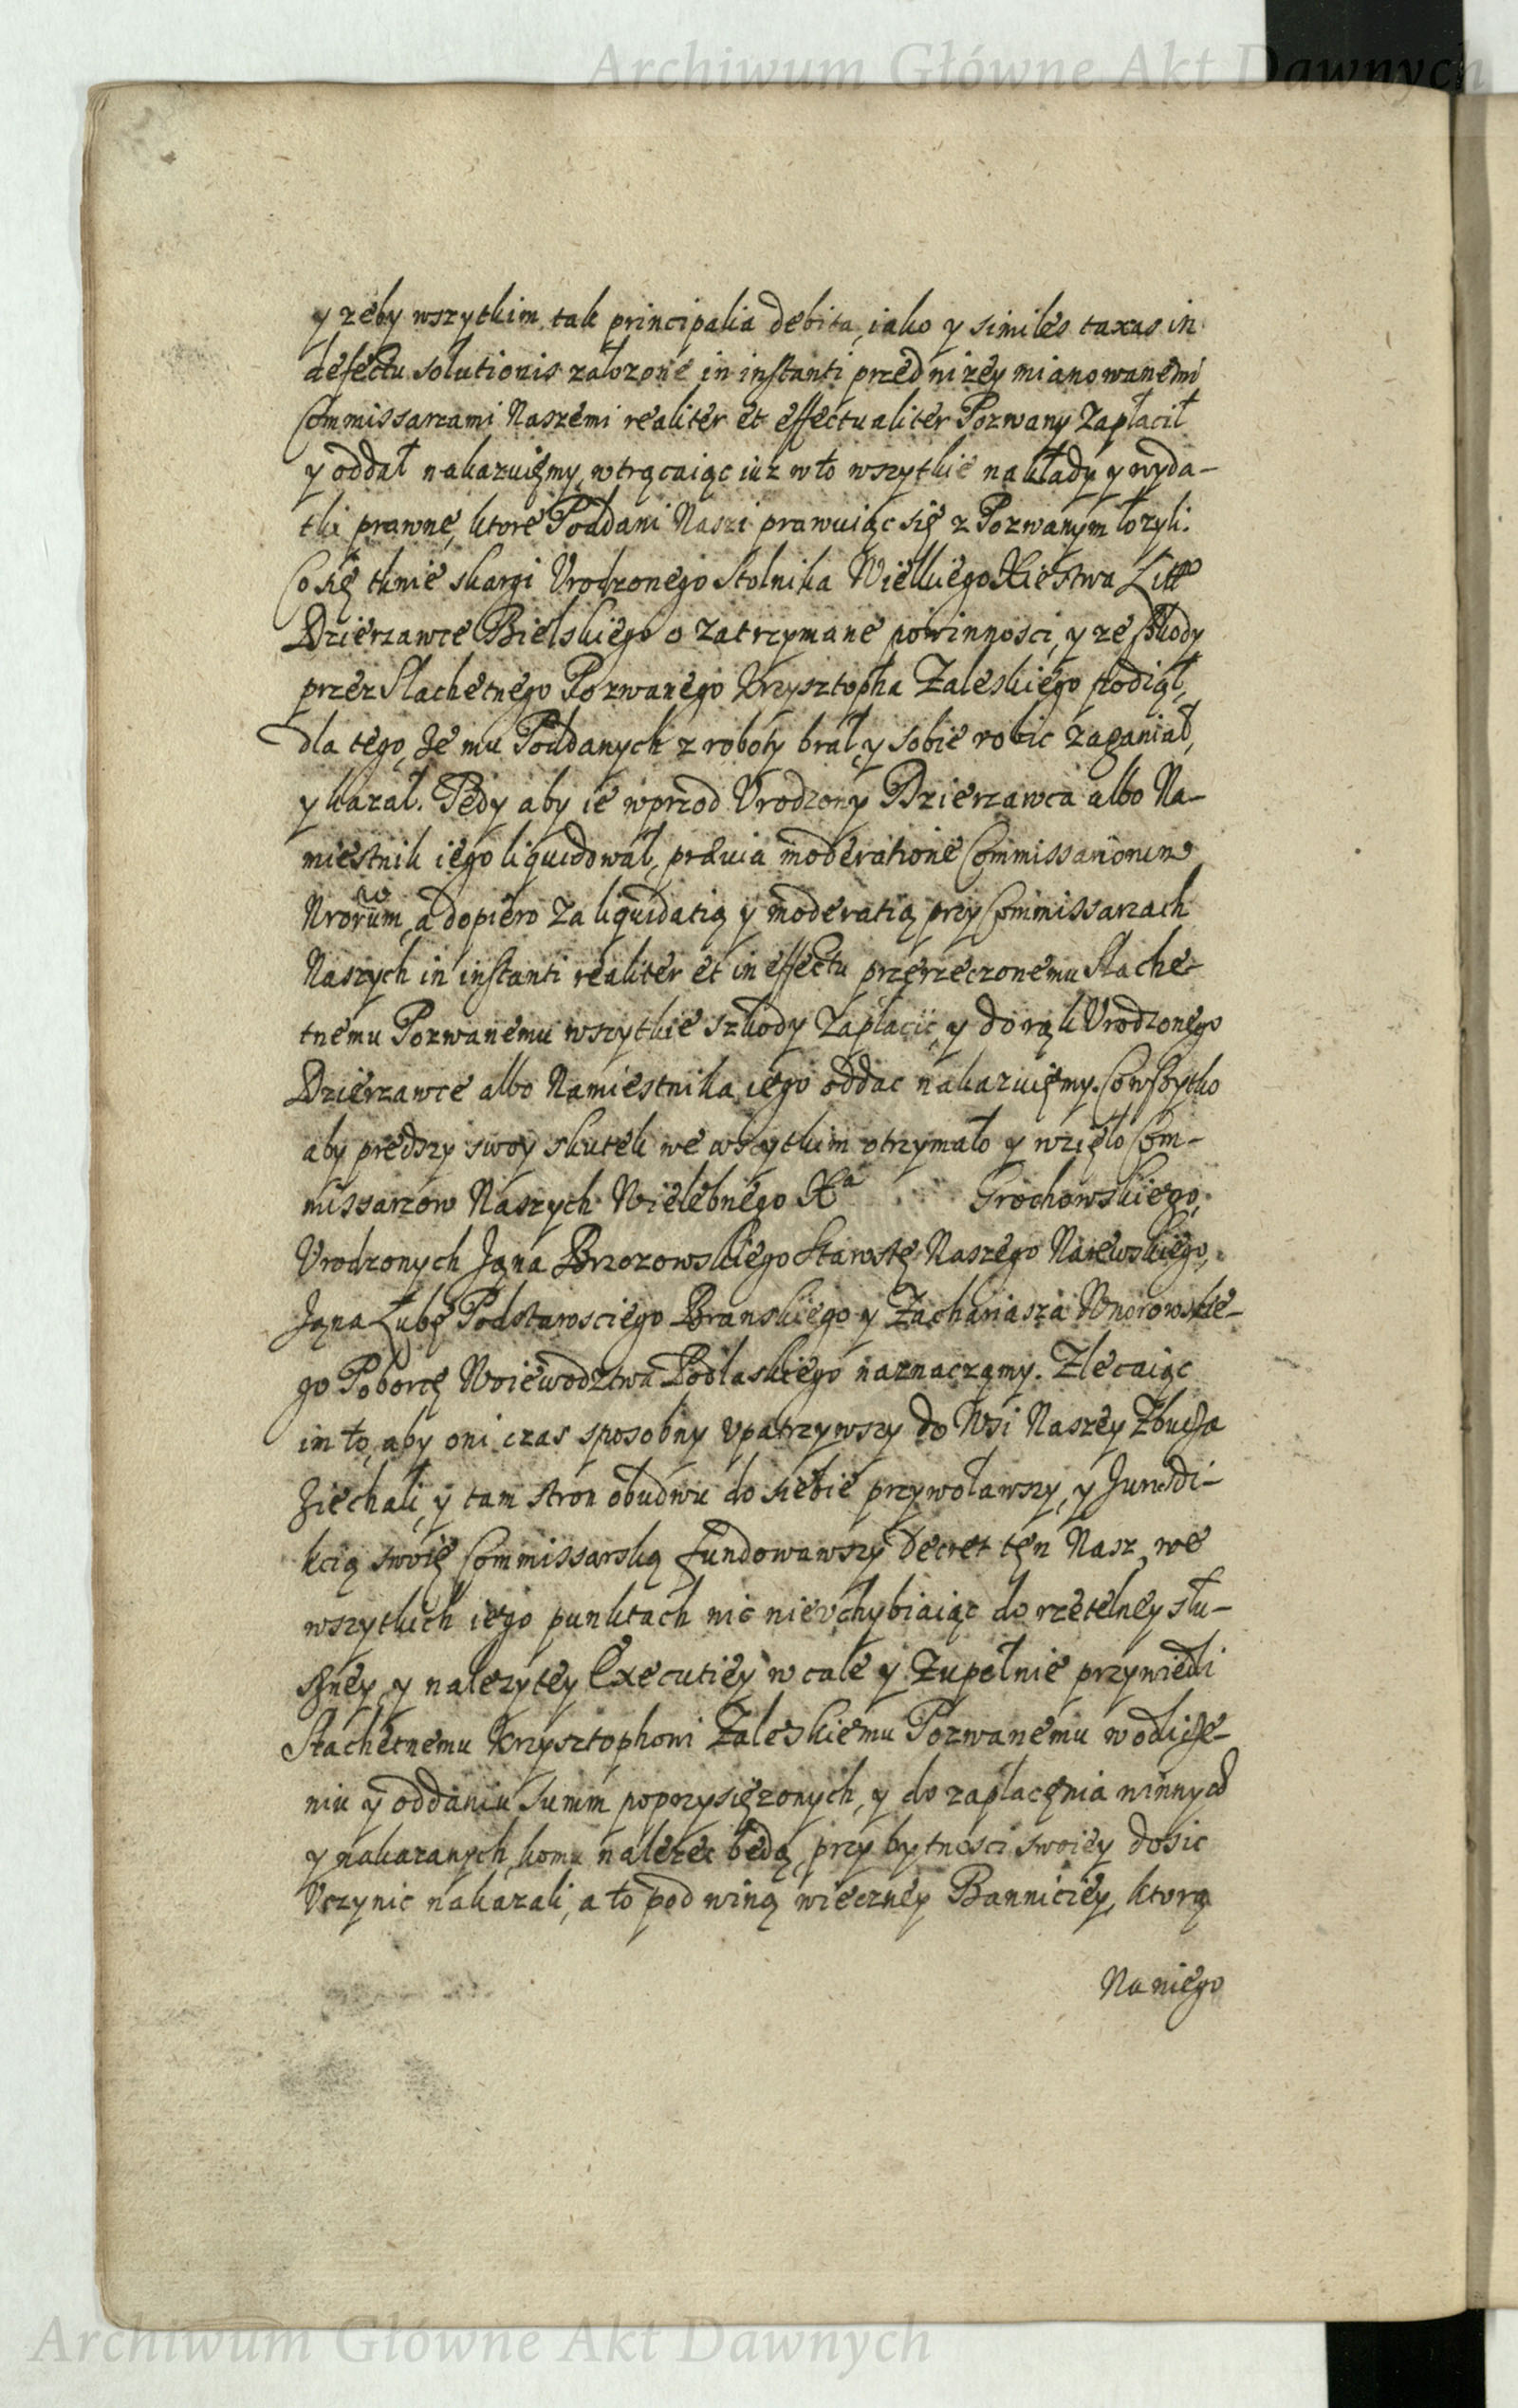 Archiwum Główne Akt Dawnych
y zeby wszytkim tak principalia debita, iako y similes taxas in
defectu solutionis załozone in instanti przed nizey mianowanemi
Commissarzami Naszemi realiter et effectualiter Pozwany Zapłacił
y oddał nakazuięmy, wtrącaiąc iuz w to wszytkie nakłady y wyda-
tki prawne, ktore Poddani Naszi prawuiąc się z Pozwanym łozyli.
Co się tknie skargi Vrodzonego Stolnika Wielkiego Xiestwa Litt°
Dzierzawce Bielskiego o zatrzymane powinnosci, y ze szkody
przez Slachetnego Pozwanego Krzysztopha Zaleskiego podiął,
dla tego, ze mu Poddanych z roboty brał, y sobie robic zaganiał,
y kazał. Tedy aby ie wprzod Vrodzony Dzierzawca albo Na-
miestnik iego liquidował, præuia moderatione Commissariorum
Nrorum, a dopiero za liquidatią y moderatią przy Commissarzach
Naszych in instanti realiter et in effectu przerzeczonemu Slache-
tnemu Pozwanemu wszytkie szkody Zapłacic, y do rąk Vrodzonego
Dzierzawce albo Namiestnika iego oddac nakazuięmy. Co wszytko
aby prędszy swoy skutek we wszytkim otrzymało y wzięło Com-
missarzow Naszych Wielebnego Xa Grochowskiego,
Vrodzonych Jana Brzozowskiego Starostę Naszego Narewskiego,
Jana Łubę Podstarosciego Branskiego y Zachariasza Wnorowskie-
go Poborcę Woiewodztwa Podlaskiego naznaczamy. Zlecaiąc
im to, aby oni czas sposobny vpatrzywszy do Wsi Naszey Zbucza
Ziechali, y tam stron obudwu do siebie przywoławszy, y Jurisdi-
kcią swoię Commissarską fundowawszy Decret tęn Nasz, we
wszytkich iego punktach nic nievchybiaiąc do rzetelney słu-
szney, y nalezytey Executiey w cale y Zupełnie przywiedli
Slachetnemu Krzysztophowi Zaleskiemu Pozwanemu w odlicze-
niu y oddaniu summ poprzysięzonych, y do zapłacęnia winnych
y nakazanych, komu nalezec będą, przy bytnosci swoiey dosic
Vczynic nakazali, a to pod winą wieczney Banniciey, ktorą
Na niego
Archiwum Główne Akt Dawnych